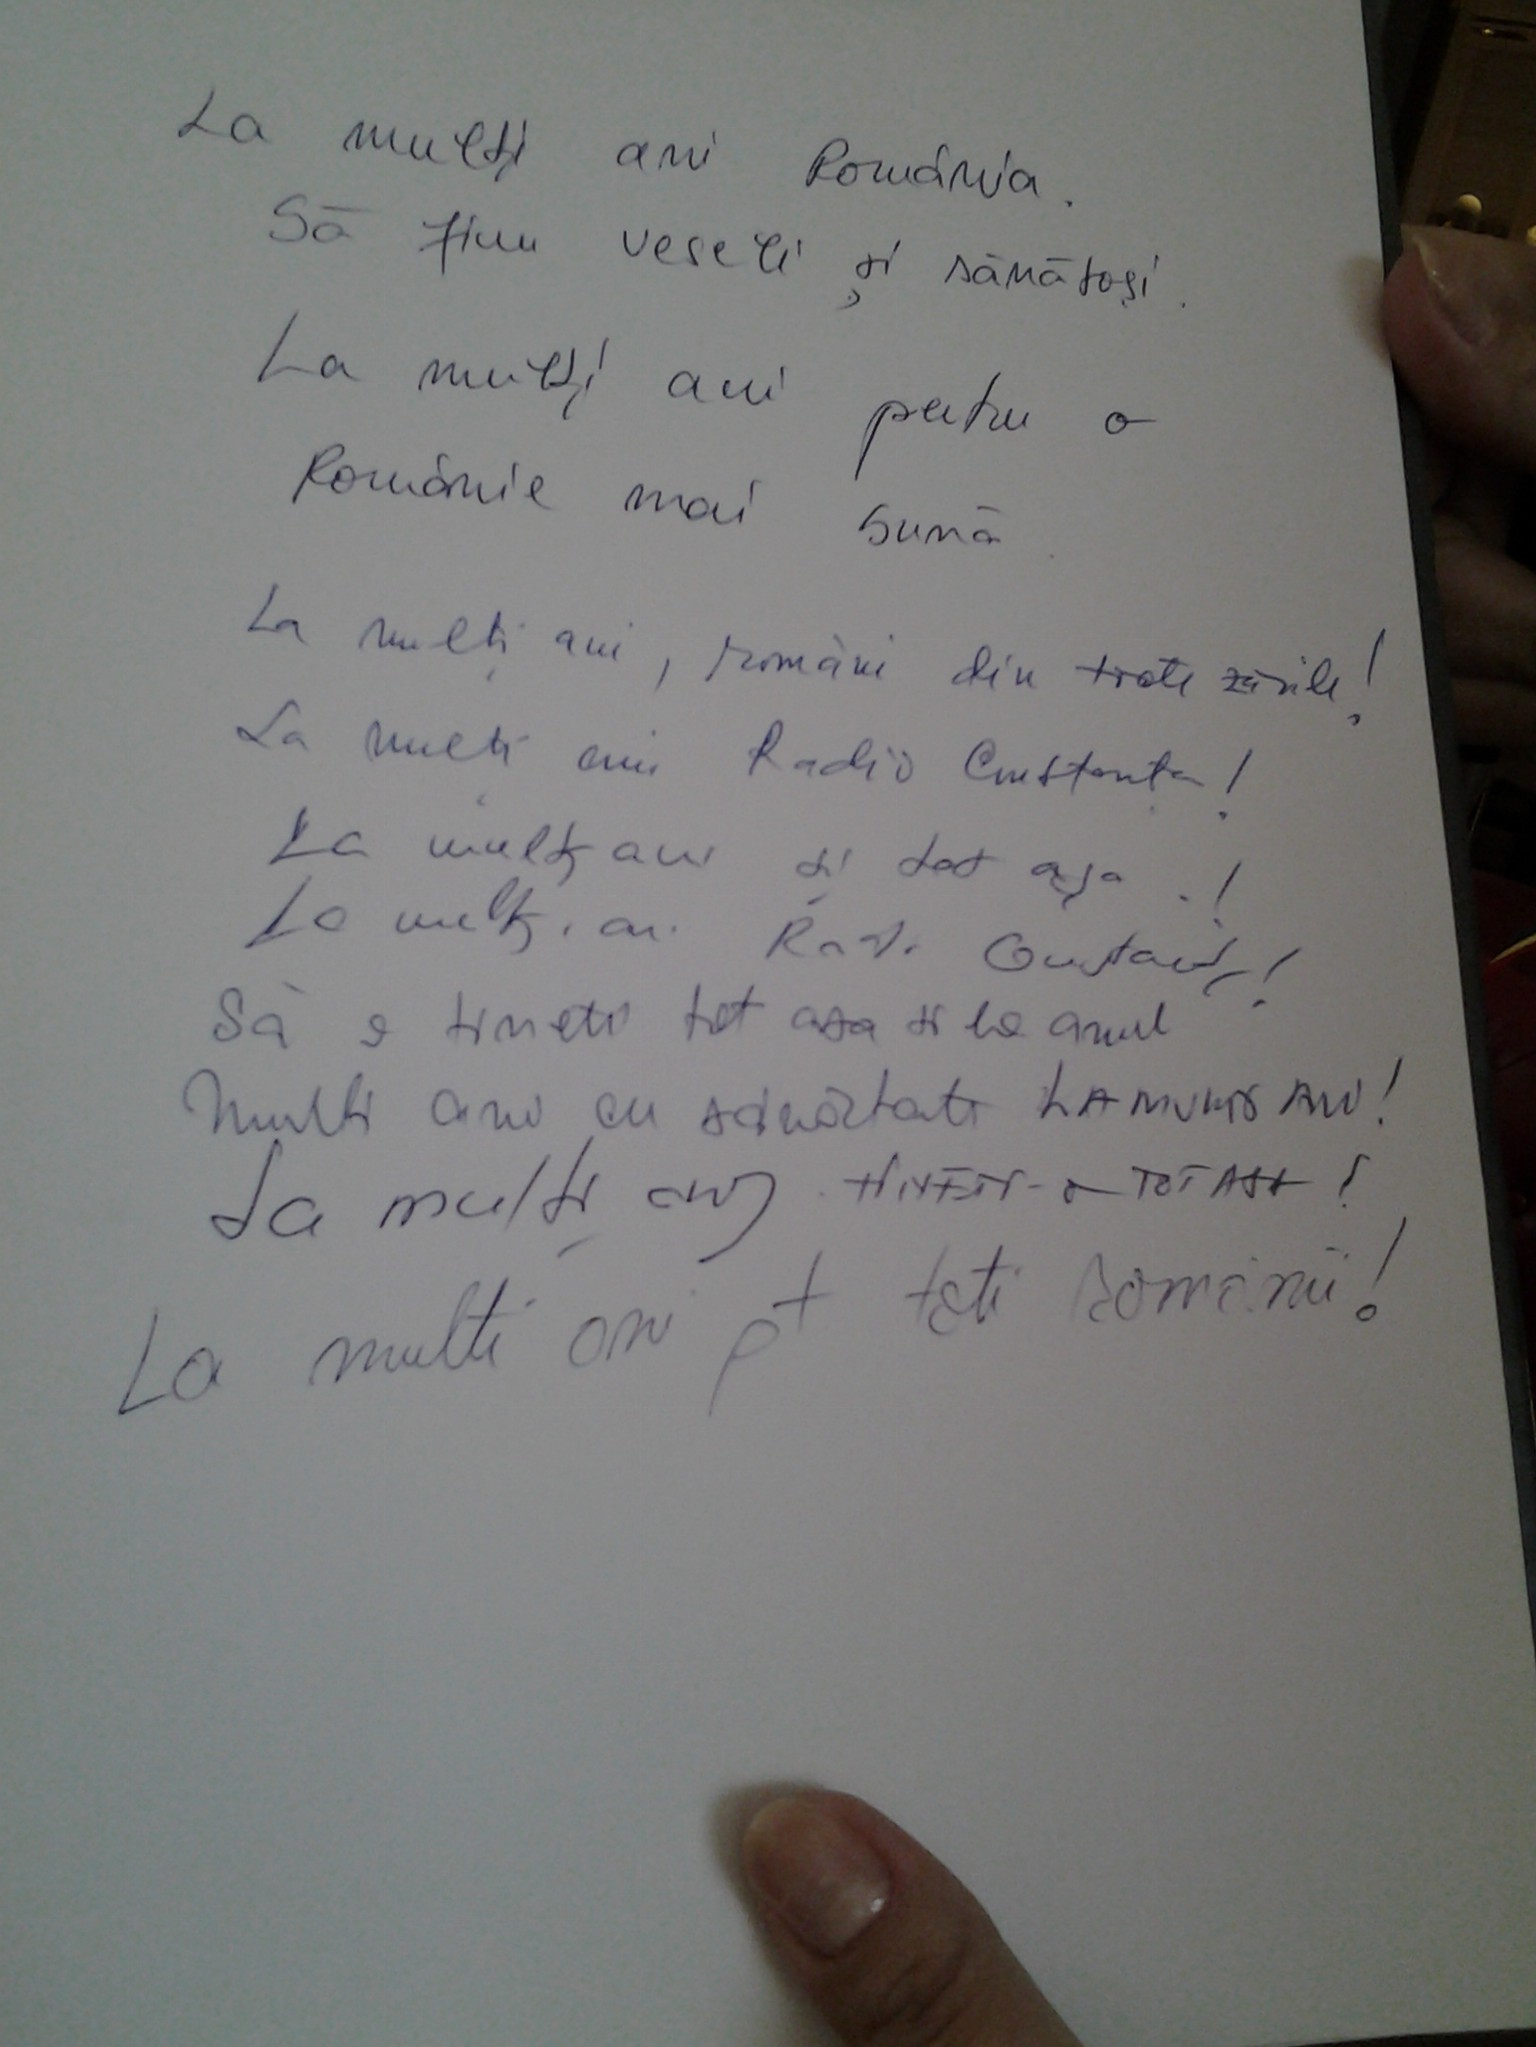 La mulți ani România.
Să fim veseli și sănătoși.
La mulți ani pentru o
Românie mai bună.
La mulți ani, români din toate zările!
La mulți ani Radio Constanța!
La mulți ani și tot așa!
La mulți ani Radio Constanța!
Să o tineti tot asa si la anul
Multi ani cu sănătate LA MULȚI ANI!
La mulți ani TINETI-O TOT ASA!
La multi ani pt toti românii!